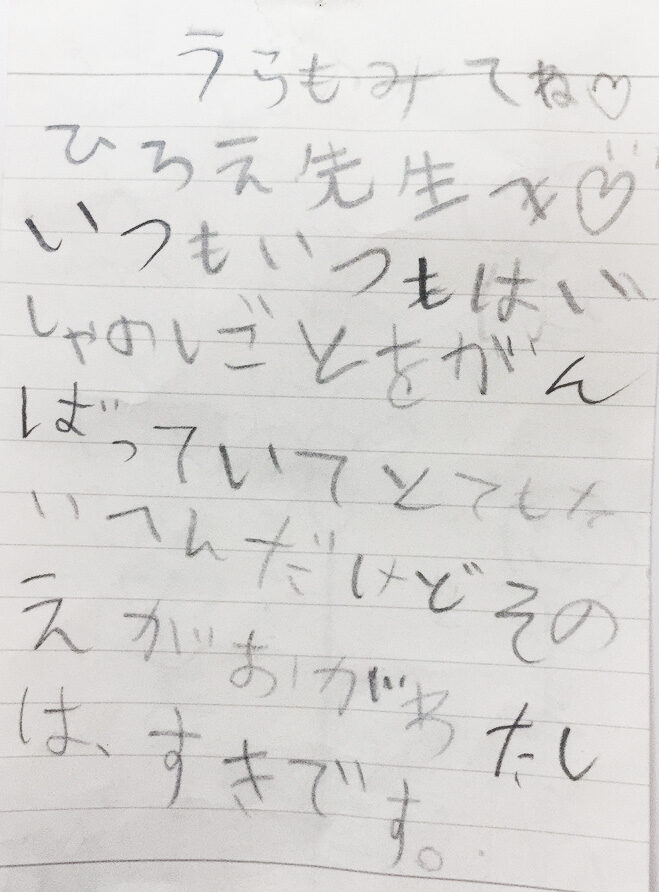 うらもみてね♡
ひろえ先生へ♡
いつもいつもはい
しゃのしごとをがん
ばっていてとてもた
いへんだけどその
えがおががわたし
は、すきです。